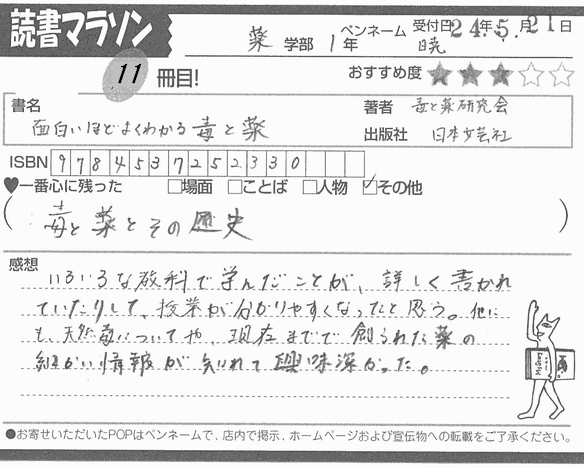 読書マラソン
薬 学部 1年 ペンネーム 暁 受付日 24年5月21日
11冊目! おすすめ度 ★★★☆☆
書名 面白いほどよくわかる毒と薬
著者 毒と薬研究会
出版社 日本文芸社
ISBN 9784537252330
♥一番心に残った □場面 □ことば □人物 ☑その他
(毒と薬とその歴史)
感想
いろいろな教科で学んだことが、詳しく書かれ
ていたりして、授業が分かりやすくなったと思う。他に
も、天然毒についてや、現在までで創られた薬の
細かい情報が知れて興味深かった。
●お寄せいただいたPOPはペンネームで、店内で掲示、ホームページおよび宣伝物への転載をご了承ください。